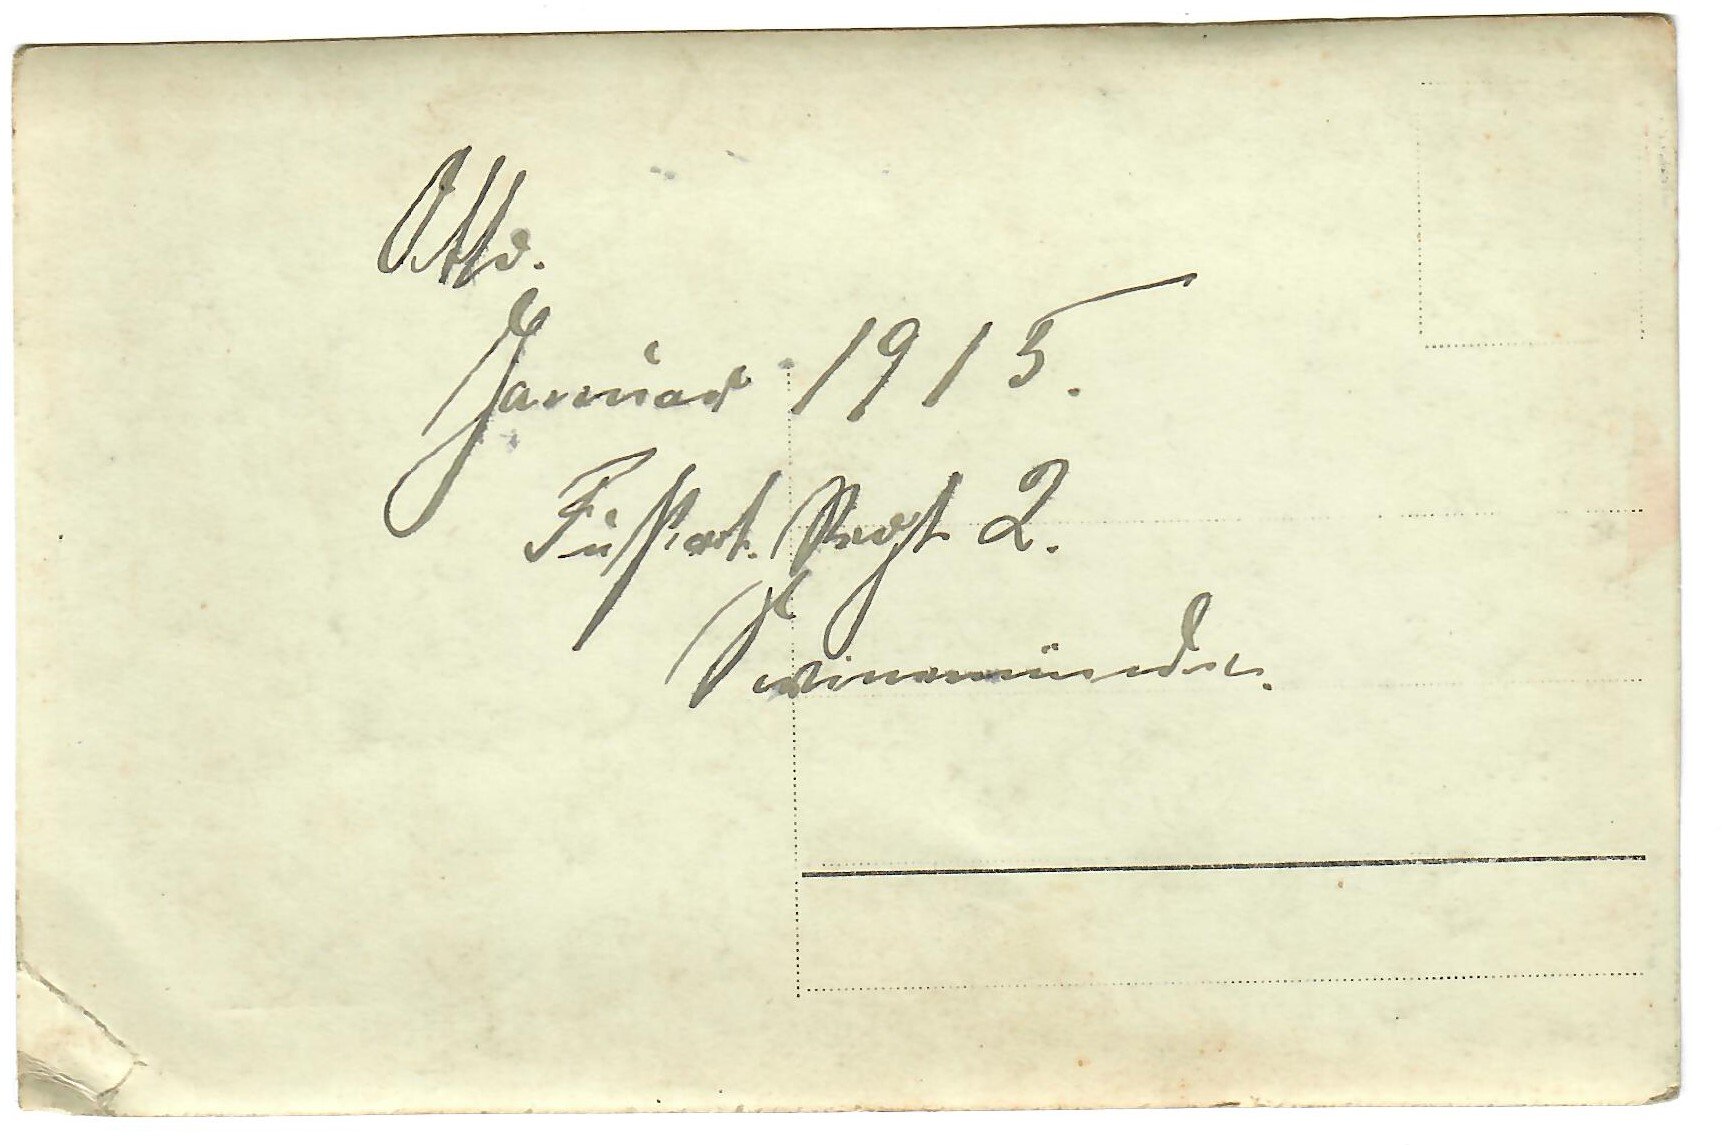 Otto.
Januar 1915.
Fußart. Regt 2.
Swinemünde.